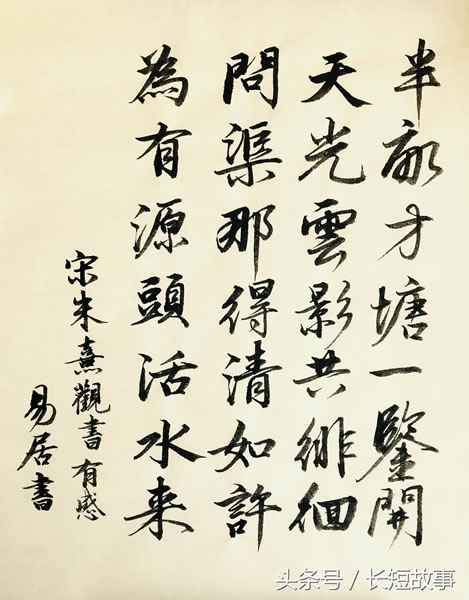 半畝方塘一鑒開
天光雲影共徘徊
問渠那得清如許
為有源頭活水来
宋朱熹觀書有感
易居書
头条号 / 长短故事